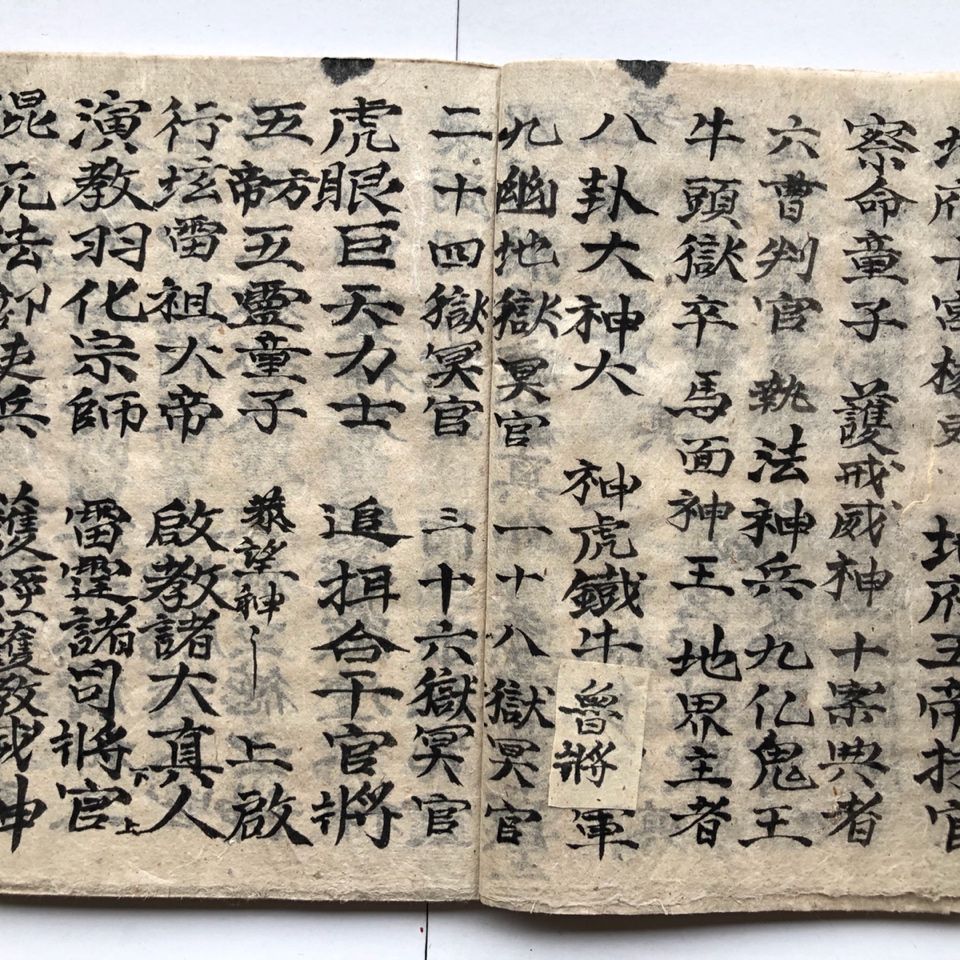 地府十宮 地府五帝
察命童子 護戒威神 十案典者
六曹判官 執法神兵 九亿鬼王
牛頭獄卒 馬面神王 地界主者
八卦大神大 神虎鐵牛魯將軍
九幽地獄冥官 一十八獄冥官
二十四獄冥官 三十六獄冥官
虎眼巨天力士 追掯合干官將
五方五帝五靈童子 恭望神〻 上啟
行坛雷祖大帝 啟教諸大真人
演教羽化宗師 雷霆諸司將官 下 上
混元法 兵 護經護教 神